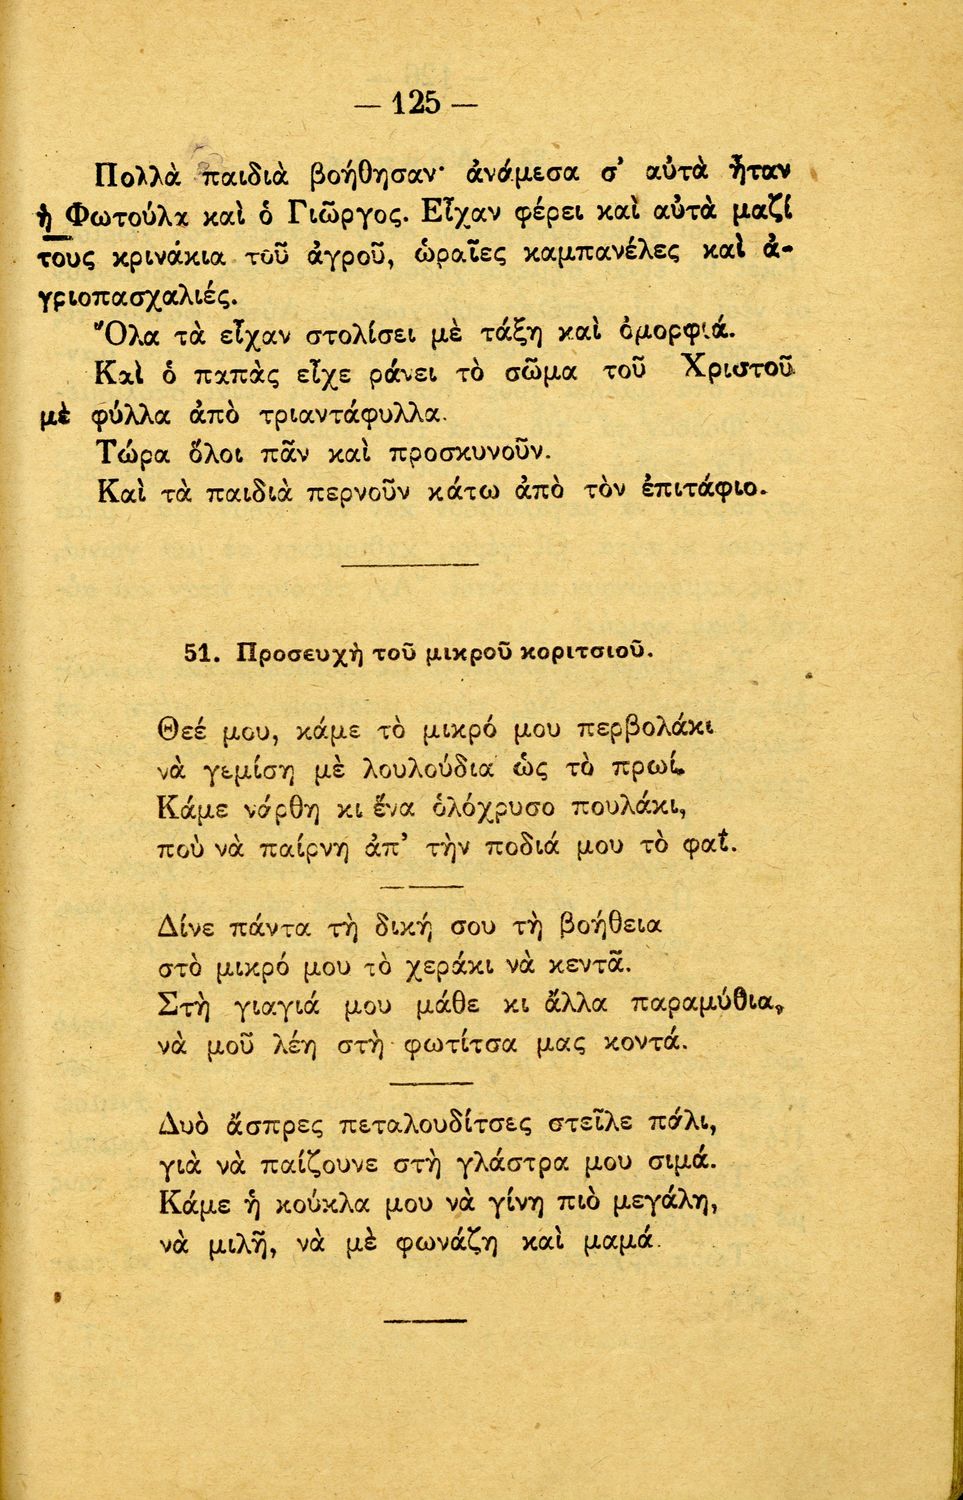 — 125 —
Πολλὰ παιδιὰ βοήθησαν· ἀνάμεσα σ’ αὐτὰ ἦταν
ἡ Φωτούλα καὶ ὁ Γιῶργος. Εἶχαν φέρει καὶ αὐτὰ μαζί
τους κρινάκια τοῦ ἀγροῦ, ὡραῖες καμπανέλες καὶ ἀ-
γριοπασχαλιές.
Ὅλα τὰ εἶχαν στολίσει μὲ τάξη καὶ ὀμορφιά.
Καὶ ὁ παπὰς εἶχε ράνει τὸ σῶμα τοῦ Χριστοῦ
μὲ φύλλα ἀπὸ τριαντάφυλλα.
Τώρα ὅλοι πᾶν καὶ προσκυνοῦν.
Καὶ τὰ παιδιὰ περνοῦν κάτω ἀπὸ τὸν ἐπιτάφιο.
51. Προσευχὴ τοῦ μικροῦ κοριτσιοῦ.
Θεέ μου, κάμε τὸ μικρό μου περβολάκι
νὰ γεμίση μὲ λουλούδια ὡς τὸ πρωί.
Κάμε νάρθη κι ἕνα ὁλόχρυσο πουλάκι,
ποὺ νὰ παίρνη ἀπ’ τὴν ποδιά μου τὸ φαΐ.
Δίνε πάντα τὴ δική σου τὴ βοήθεια
στὸ μικρό μου τὸ χεράκι νὰ κεντᾶ.
Στὴ γιαγιά μου μάθε κι ἄλλα παραμύθια,
νὰ μοῦ λέη στὴ φωτίτσα μας κοντά.
Δυὸ ἄσπρες πεταλουδίτσες στεῖλε πάλι,
γιὰ νὰ παίζουνε στὴ γλάστρα μου σιμά.
Κάμε ἡ κούκλα μου νὰ γίνη πιὸ μεγάλη,
νὰ μιλῆ, νὰ μὲ φωνάζη καὶ μαμά.